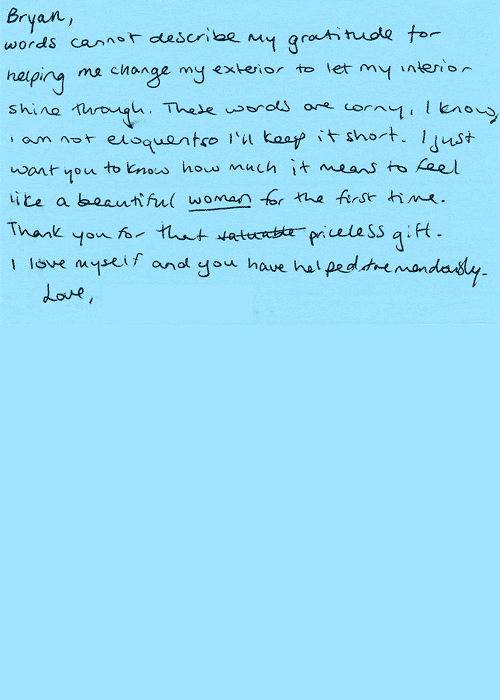 Bryan,
words cannot describe my gratitude for
helping me change my exterior to let my interior
shine through. These words are corny, I know,
I am not eloquent so I'll keep it short. I just
want you to know how much it means to feel
like a beautiful woman for the first time.
Thank you for that valuable priceless gift.
I love myself and you have helped tremendously.
Love,